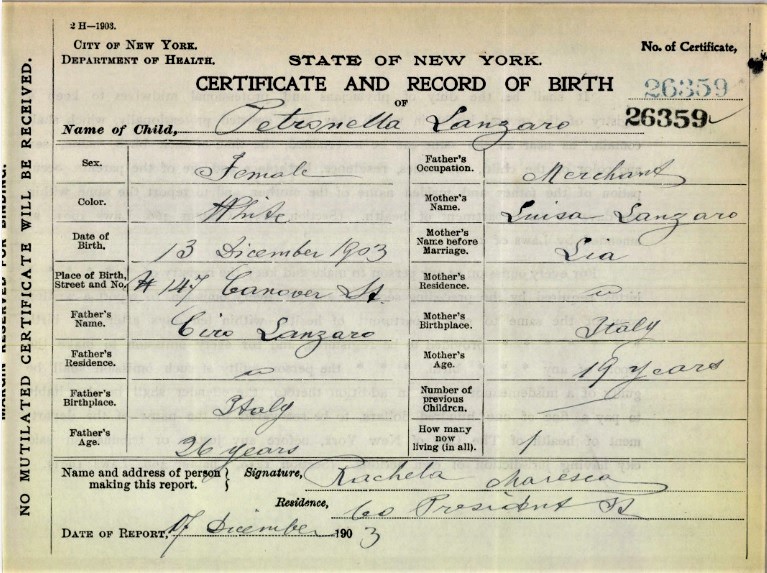 2 H—1903.
CITY OF NEW YORK.
DEPARTMENT OF HEALTH.
No. of Certificate,
STATE OF NEW YORK.
CERTIFICATE AND RECORD OF BIRTH
26359
OF
26359
Name of Child, Petronella Lanzaro
Sex. Female
Father's Occupation. Merchant
Color. White
Mother's Name. Luisa Lanzaro
Date of Birth, 13 Dicember 1903
Mother's Name before Marriage. Lia
Place of Birth, Street and No. # 147 Conover St.
Mother's Residence.
Father's Name. Ciro Lanzaro
Mother's Birthplace. Italy
Father's Residence.
Mother's Age. 19 years
Father's Birthplace. Italy
Number of previous Children.
Father's Age. 26 years
How many now living (in all). 1
Name and address of person making this report. Signature, Rachela Maresca
Residence, 60 President St
DATE OF REPORT, 17 Dicember 1903
NO MUTILATED CERTIFICATE WILL BE RECEIVED.
MARGIN RESERVED FOR BINDING.